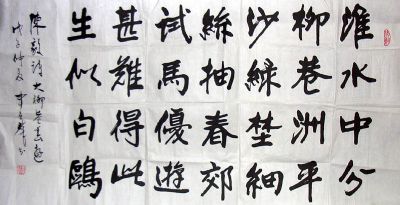 淮水中分
柳巷洲平
沙綠埜細
絲抽春郊
試馬優遊
甚難得此
生似白鷗
陳毅詩大柳巷春遊
戊子仲夏